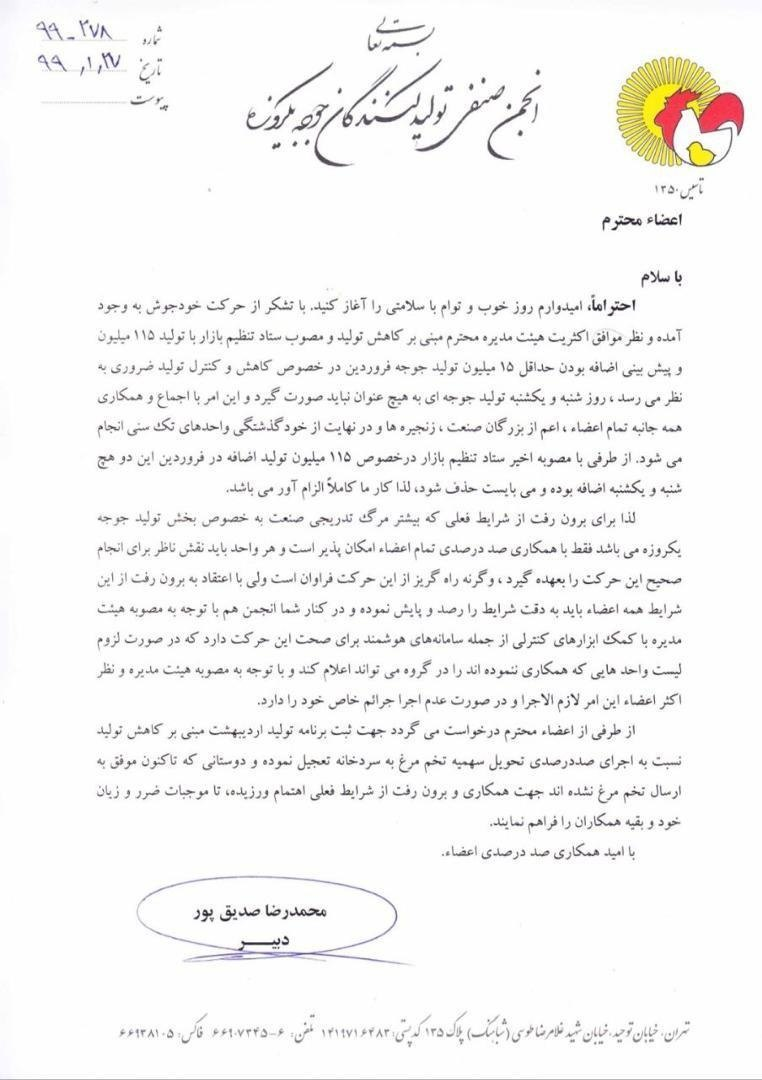 بسمه تعالی
انجمن صنفی تولید کنندگان جوجه یکروزه
شماره ۹۹-۲۷۸
تاریخ ۹۹,۱,۲۷
پیوست
تاسیس ۱۳۵۰
اعضاء محترم
با سلام
احتراماً، امیدوارم روز خوب و توام با سلامتی را آغاز کنید. با تشکر از حرکت خودجوش به وجود
آمده و نظر موافق اکثریت هیئت مدیره محترم مبنی بر کاهش تولید و مصوب ستاد تنظیم بازار با تولید ۱۱۵ میلیون
و پیش بینی اضافه بودن حداقل ۱۵ میلیون تولید جوجه فروردین در خصوص کاهش و کنترل تولید ضروری به
نظر می رسد ، روز شنبه و یکشنبه تولید جوجه ای به هیچ عنوان نباید صورت گیرد و این امر با اجماع و همکاری
همه جانبه تمام اعضاء ، اعم از بزرگان صنعت ، زنجیره ها و در نهایت از خودگذشتگی واحدهای تک سنی انجام
می شود. از طرفی با مصوبه اخیر ستاد تنظیم بازار درخصوص ۱۱۵ میلیون تولید اضافه در فروردین این دو هچ
شنبه و یکشنبه اضافه بوده و می بایست حذف شود، لذا کار ما کاملاً الزام آور می باشد.
لذا برای برون رفت از شرایط فعلی که بیشتر مرگ تدریجی صنعت به خصوص بخش تولید جوجه
یکروزه می باشد فقط با همکاری صد درصدی تمام اعضاء امکان پذیر است و هر واحد باید نقش ناظر برای انجام
صحیح این حرکت را بعهده گیرد ، وگرنه راه گریز از این حرکت فراوان است ولی با اعتقاد به برون رفت از این
شرایط همه اعضاء باید به دقت شرایط را رصد و پایش نموده و در کنار شما انجمن هم با توجه به مصوبه هیئت
مدیره با کمک ابزارهای کنترلی از جمله سامانه‌های هوشمند برای صحت این حرکت دارد که در صورت لزوم
لیست واحد هایی که همکاری ننموده اند را در گروه می تواند اعلام کند و با توجه به مصوبه هیئت مدیره و نظر
اکثر اعضاء این امر لازم الاجرا و در صورت عدم اجرا جرائم خاص خود را دارد.
از طرفی از اعضاء محترم درخواست می گردد جهت ثبت برنامه تولید اردیبهشت مبنی بر کاهش تولید
نسبت به اجرای صددرصدی تحویل سهمیه تخم مرغ به سردخانه تعجیل نموده و دوستانی که تاکنون موفق به
ارسال تخم مرغ نشده اند جهت همکاری و برون رفت از شرایط فعلی اهتمام ورزیده، تا موجبات ضرر و زیان
خود و بقیه همکاران را فراهم نمایند.
با امید همکاری صد درصدی اعضاء.
محمدرضا صدیق پور
دبیـــر
تهران، خیابان توحید، خیابان شهید غلامرضا طوسی (شباهنگ) پلاک ۱۳۵ کدپستی: ۱۴۱۹۷۱۶۴۸۳ تلفن: ۶-۶۶۹۰۷۳۴۵ فاکس: ۶۶۹۳۸۱۰۵